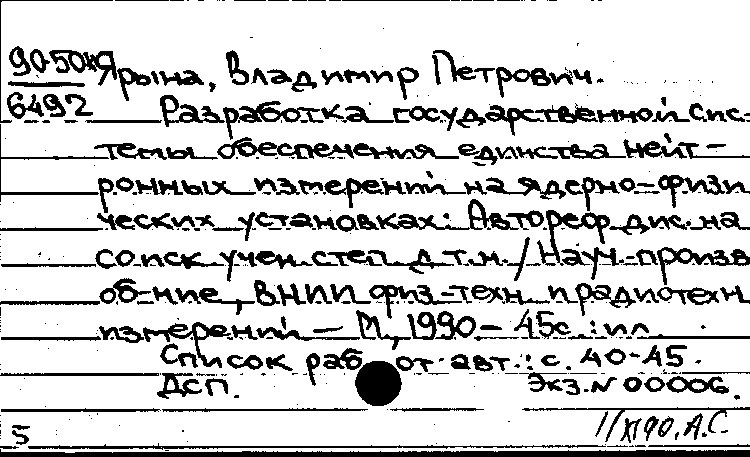 90-50 Ярына, Владимир Петрович.
6492 Разработка государственной сис-
темы обеспечения единства нейт-
ронных измерений на ядерно-физи
ческих установках: Автореф дис. на
соиск учен. степ д.т.н. / Науч.-произв
об-ние, ВНИИ физ-техн и радиотехн
измерений – М., 1990.– 45с.: ил.
Список раб от авт.: с. 40-45.
ДСП. Экз. N 00006.
5 11/XI 90. А.С.